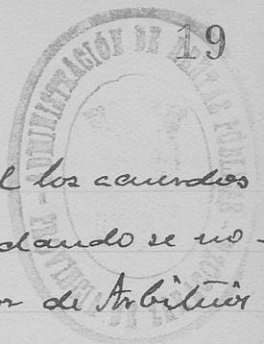 19
ADMINISTRACIÓN DE
l los acuerdos
dando se no-
or de Arbitrios